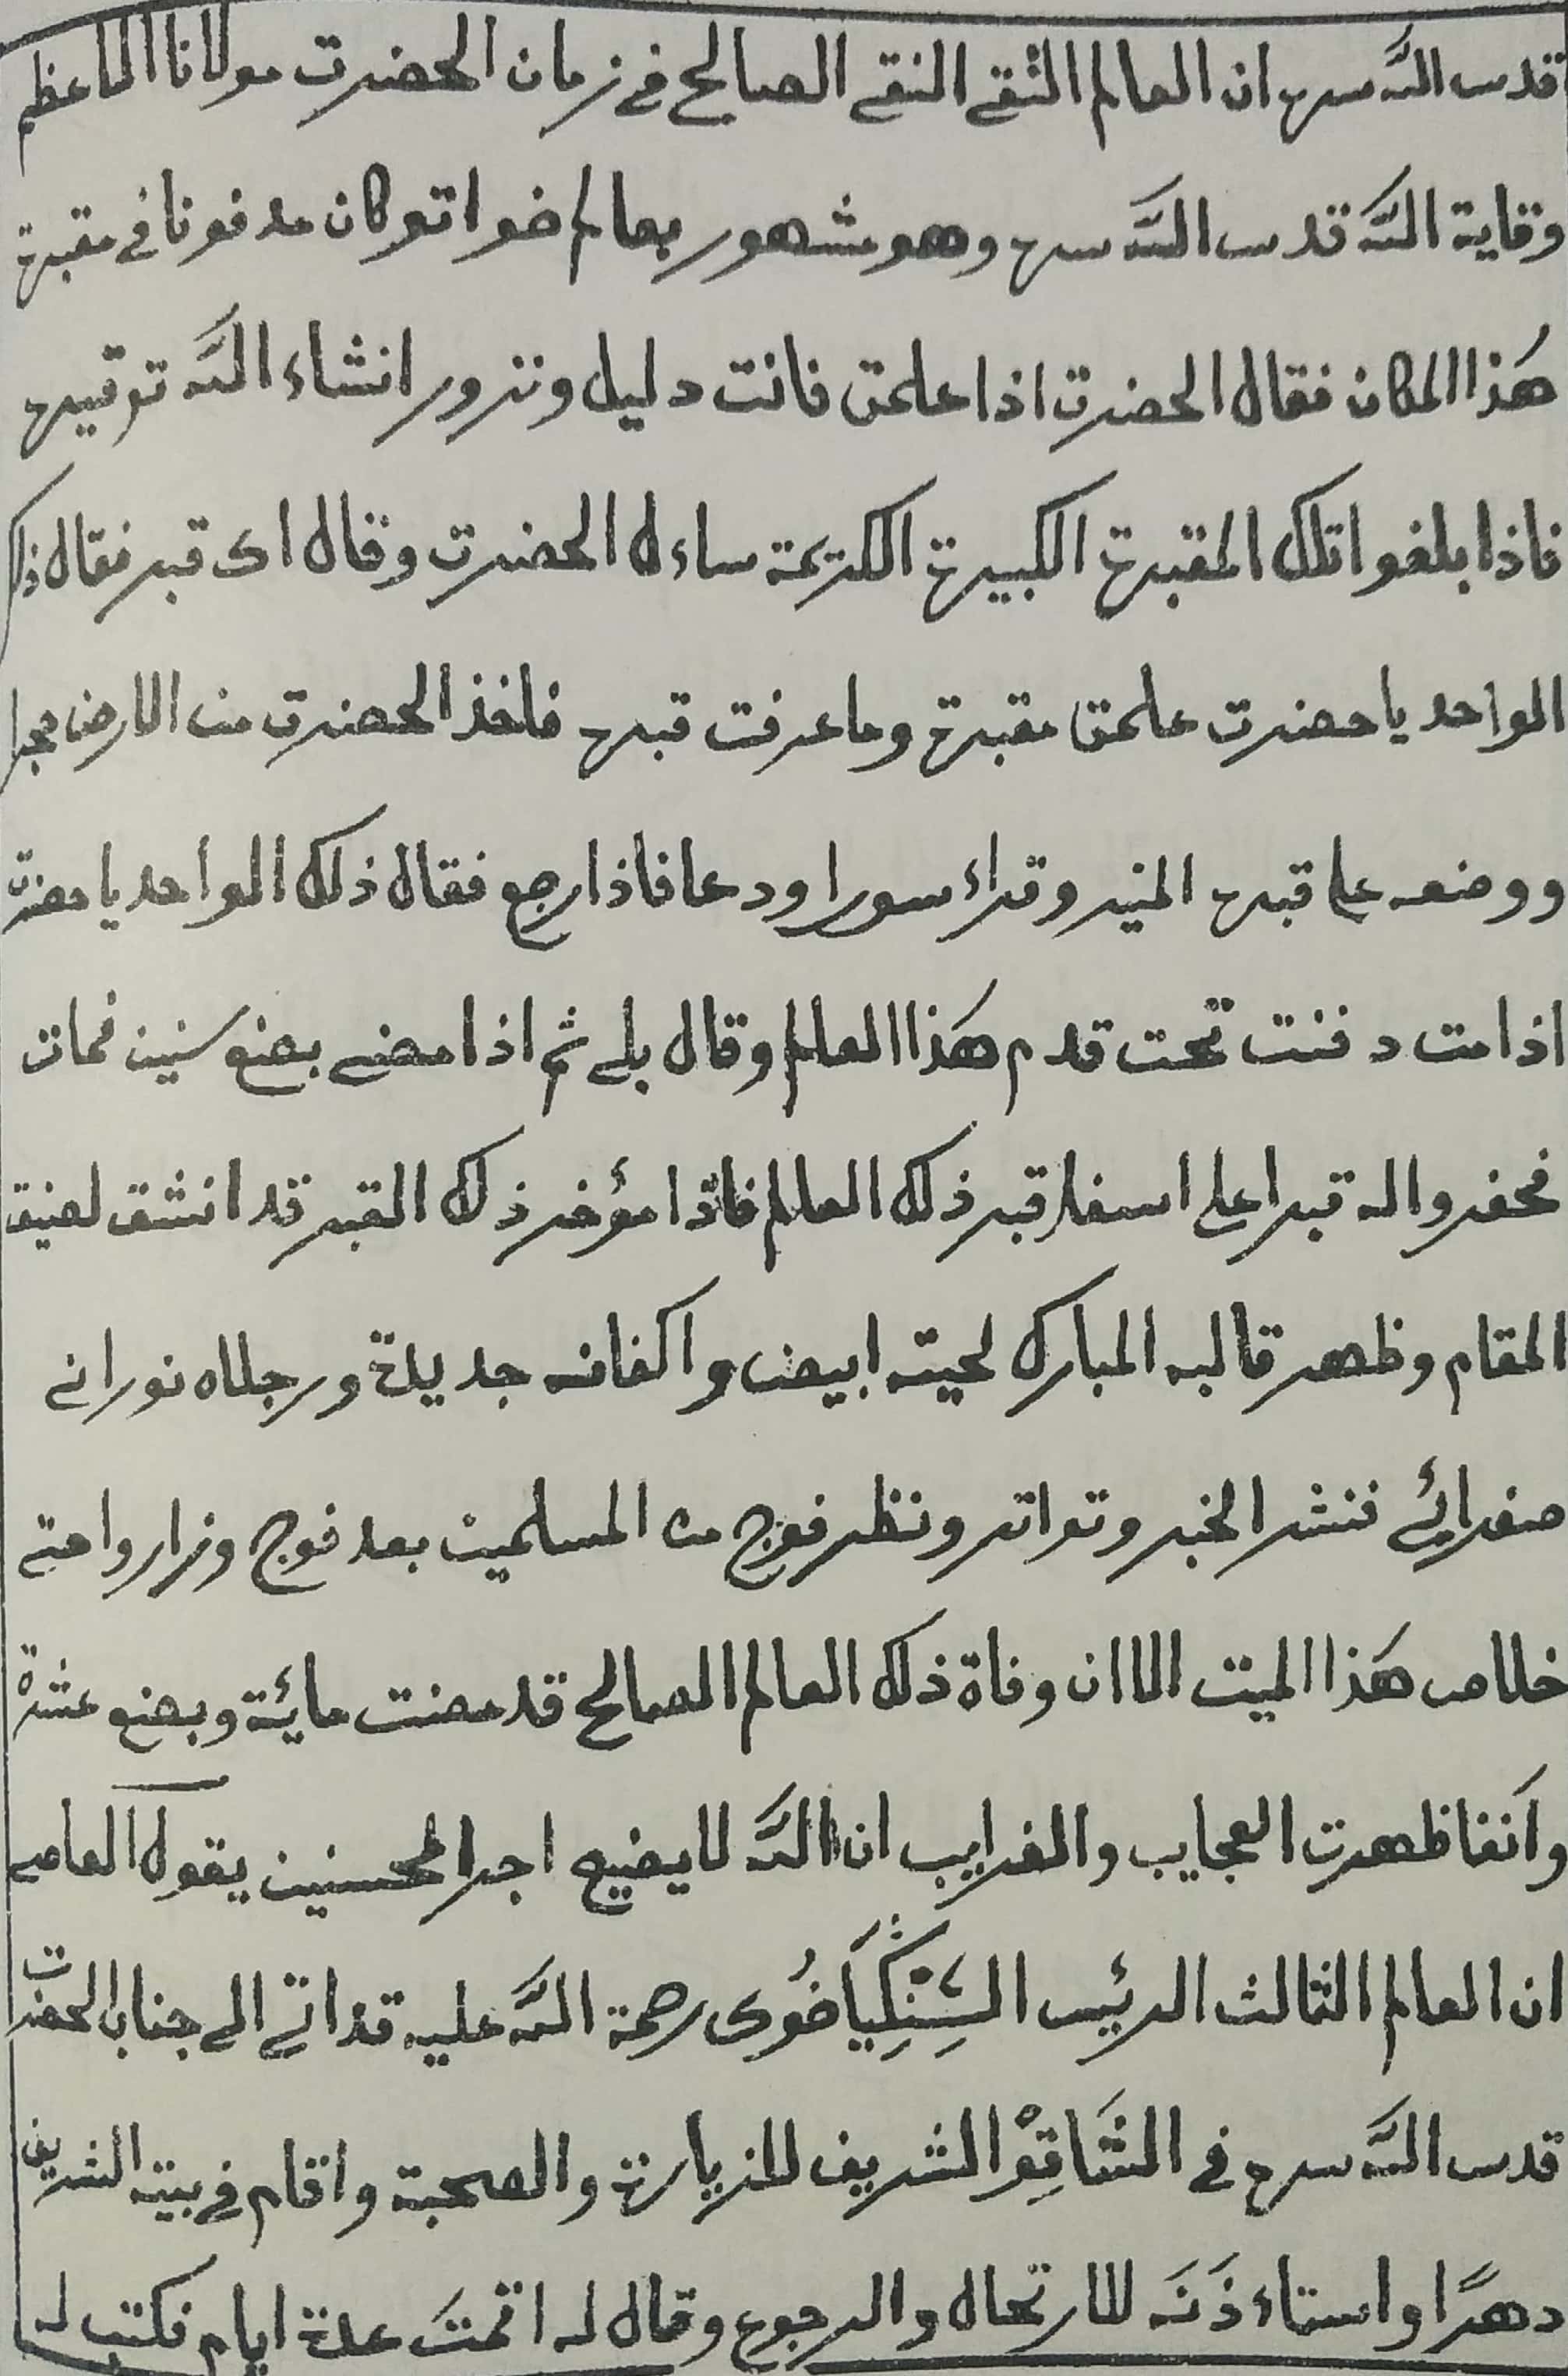 قدس الله سره ان العالم الثقى النقى الصالح فى زمان الحضرت مولانا الاعظم
وقاية الله قدس الله سره وهو مشهور بعالم خواتو كان مدفونا فى مقبرة
هذا المكان فقال الحضرت اذا علمتى فانت دليل ونزور انشاء الله توقيره
فاذا بلغوا تلك المقبرة الكبيرة الكريمة ساءل الحضرت وقال اى قبر فقال ذلك
الواحد يا حضرت علمتى مقبرة وما عرفت قبره فاخذ الحضرت من الارض حجرا
ووضعه على قبره المنير وقراء سورا ودعا فاذا رجع فقال ذلك الواحد يا حضرت
اذا مت دفنت تحت قدم هذا العالم وقال بلى ثم اذا مضى بضع سنين فمات
فحفروا له قبرا على اسفل قبر ذلك العالم فاذا مؤخر ذلك القبر قد انشق لضيق
المقام وظهر قالبه المبارك لحيته ابيض واكفانه جديدة ورجلاه نورانى
صفرائى فنشر الخبر وتواتر ونظر فوج من المسلمين بعد فوج وزاروا حتى
خلاص هذا الميت الا ان وفاة ذلك العالم الصالح قد مضت مائة وبضع عشرة
وآنفا ظهرت العجايب والغرايب ان الله لا يضيع اجر المحسنين يقول العاصى
ان العالم الثالث الرئيس الشِنْكِيَاضُوى رحمة الله عليه قد اتى الى جناب الحضرت
قدس الله سره فى الشَاقِوْ الشريف للزيارة والصحبة واقام فى بيته الشريف
دهرًا واستاءذَنَه للارتحال والرجوع وقال له اقمتَ عدة ايام فكتب له